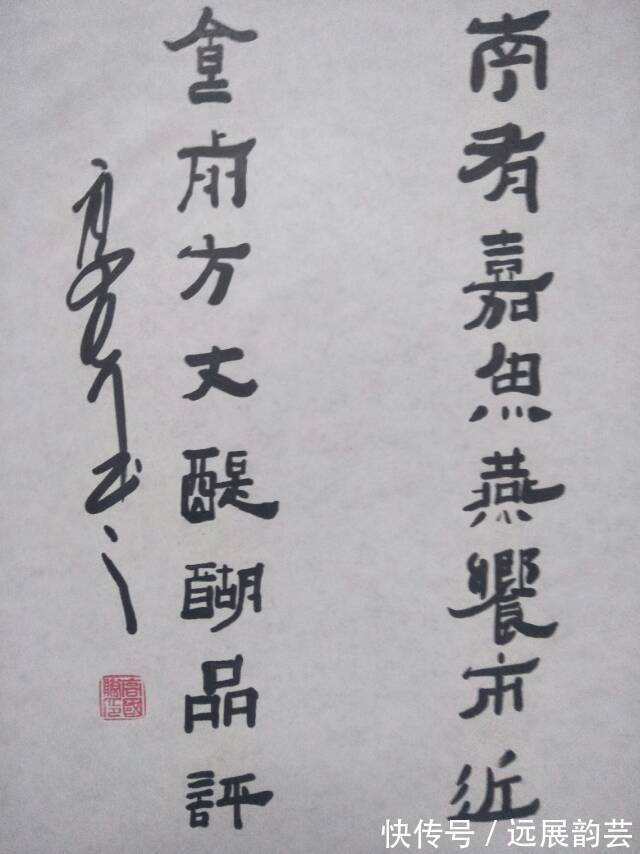 南有嘉魚燕饗市近
食前方丈醍醐品評
快传号/远展韵芸